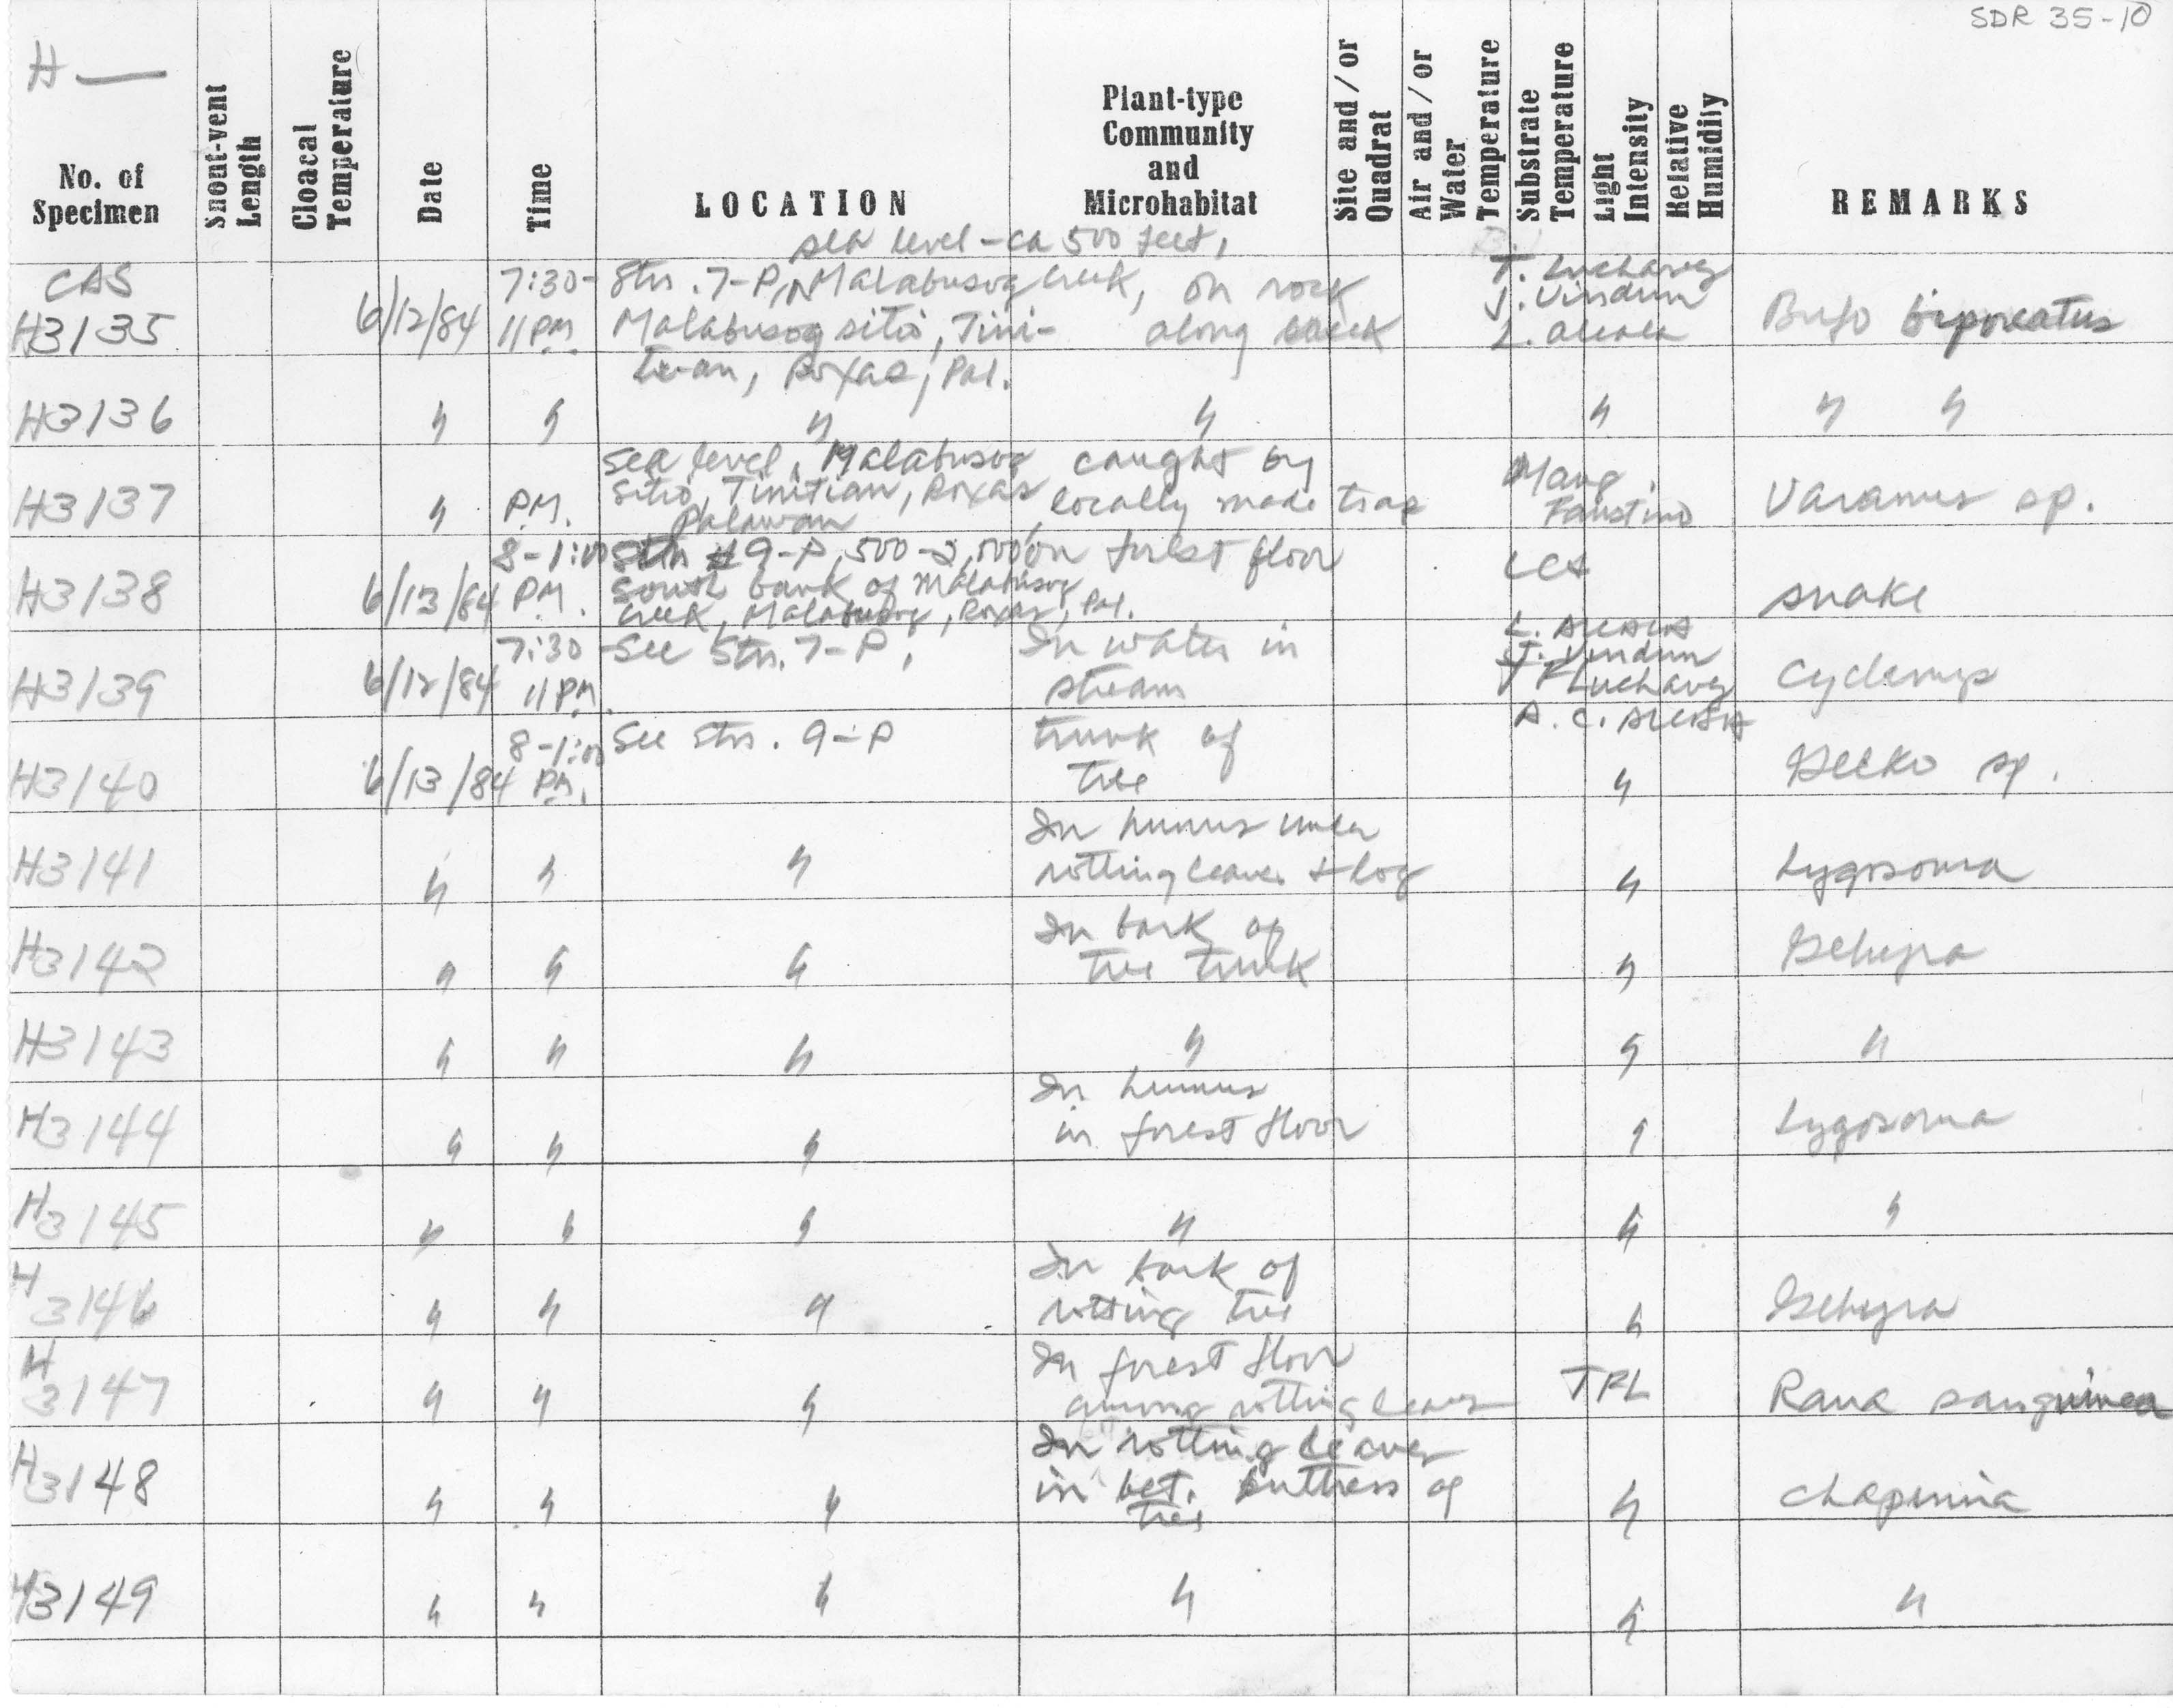 SDR 35-10
H —
No. of Specimen
Snout-vent Length
Cloacal Temperature
Date
Time
LOCATION
Plant-type Community and Microhabitat
Site and / or Quadrat
Air and / or Water Temperature
Substrate Temperature
Light Intensity
Relative Humidity
REMARKS
sea level - ca 500 feet,
CAS
H3135 6/12/84 7:30- 11 PM. Stn. 7-P, Malabusog Creek, on rock T. Luchavez
Malabusog sitio, Tini- along creek J. Vindum Bufo biporcatus
tian, Roxas, Pal. L. Alcala
H3136 〃 〃 〃 〃 〃 〃 〃
sea level, Malabusog caught by Mang
H3137 〃 P.M. Sitio, Tinitian, Roxas locally made trap Faustino Varanus sp.
Palawan
8-1:00 Stn #9-P, 500-2,000' on forest floor LCA
H3138 6/13/84 PM. South bank of Malabusog snake
Creek, Malabusog, Roxas, Pal.
7:30 See Stn. 7-P, In water in L. Alcala
H3139 6/12/84 11 PM. stream J. Vindum Cyclemys
T Luchavez
8-1:00 See Stn. 9-P trunk of A. C. Alcala
H3140 6/13/84 PM. tree 〃 Gecko sp.
In humus under
H3141 〃 〃 〃 rotting leaves & log 〃 Lygosoma
In bark of
H3142 〃 〃 〃 tree trunk 〃 Gehyra
H3143 〃 〃 〃 〃 〃 〃
In humus
H3144 〃 〃 〃 in forest floor 〃 Lygosoma
H3145 〃 〃 〃 〃 〃 〃
In bark of
H3146 〃 〃 〃 rotting tree 〃 Gehyra
In forest floor
H3147 〃 〃 〃 among rotting leaves TPL Rana sanguinea
In rotting leaves
H3148 〃 〃 〃 in bet. buttress of 〃 Chaperina
tree
H3149 〃 〃 〃 〃 〃 〃